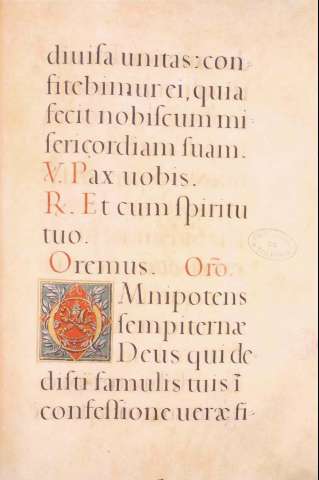 diuiſa unitas: con
fitebimur ei, quia
fecit nobiſcum mi
ſericordiam ſuam.
℣. Pax uobis.
℟. Et cum ſpiritu
tuo.
Oremus. Orõ.
OMnipotens
ſempiternæ
Deus qui de
diſti famulis tuis ĩ
confeſſione ueræ fi-